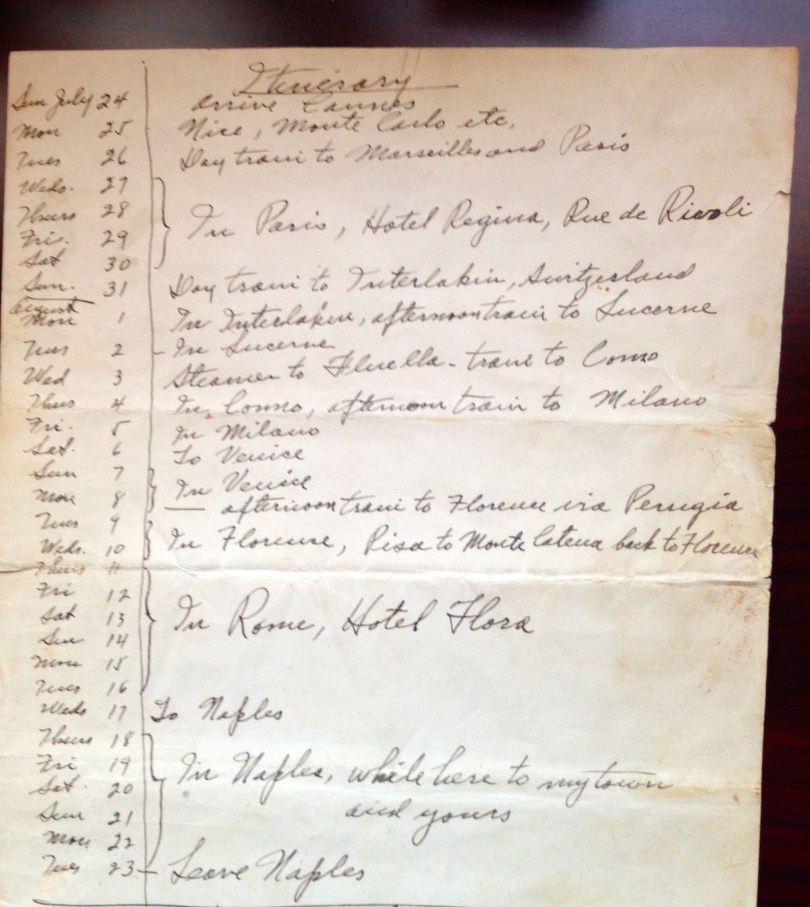 Itinerary
Sun July 24 arrive Cannes
Mon 25 Nice, Monte Carlo etc.
Tues 26 Day train to Marseilles and Paris
Weds. 27
Thurs 28 In Paris, Hotel Regina, Rue de Rivoli
Fri. 29
Sat 30
Sun. 31 Day train to Interlaken, Switzerland
August
Mon 1 In Interlaken, afternoon train to Lucerne
Tues 2 - In Lucerne
Wed 3 Steamer to Fluella - train to Como
Thus 4 In Como, afternoon train to Milano
Fri. 5 In Milano
Sat. 6 To Venice
Sun 7 In Venice
Mon 8 — afternoon train to Florence via Perugia
Tues 9
Weds. 10 In Florence, Pisa to Monte Catena back to Florence
Thurs 11
Fri 12
Sat 13 In Rome, Hotel Flora
Sun 14
Mon 15
Tues 16
Weds 17 To Naples
Thurs 18
Fri 19 In Naples, while here to my town
Sat. 20
and yours
Sun 21
Mon 22
Tues 23 - Leave Naples